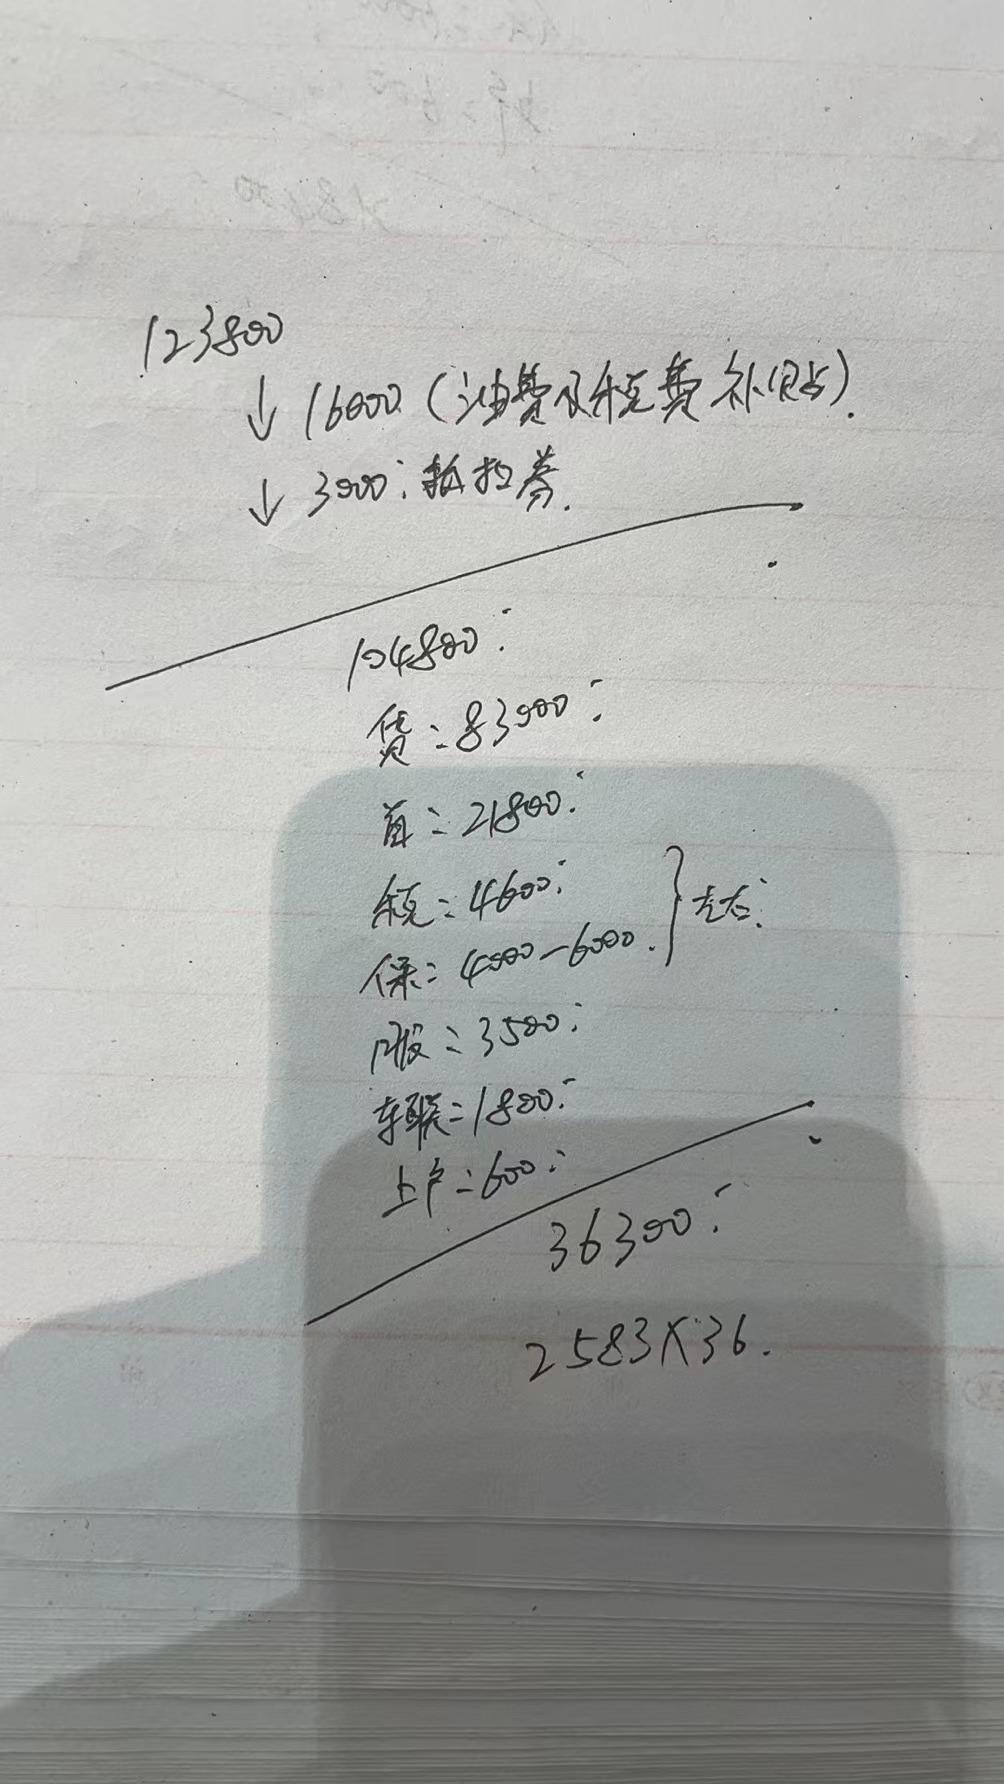 123800
↓16000(油费及税费补贴).
↓3000:抵扣券.
104800:
贷:83000:
首:21800:
税:4600:
保:4000-6000. }左右:
服:3500:
车联:1800:
上户:600:
36300:
2583X36.